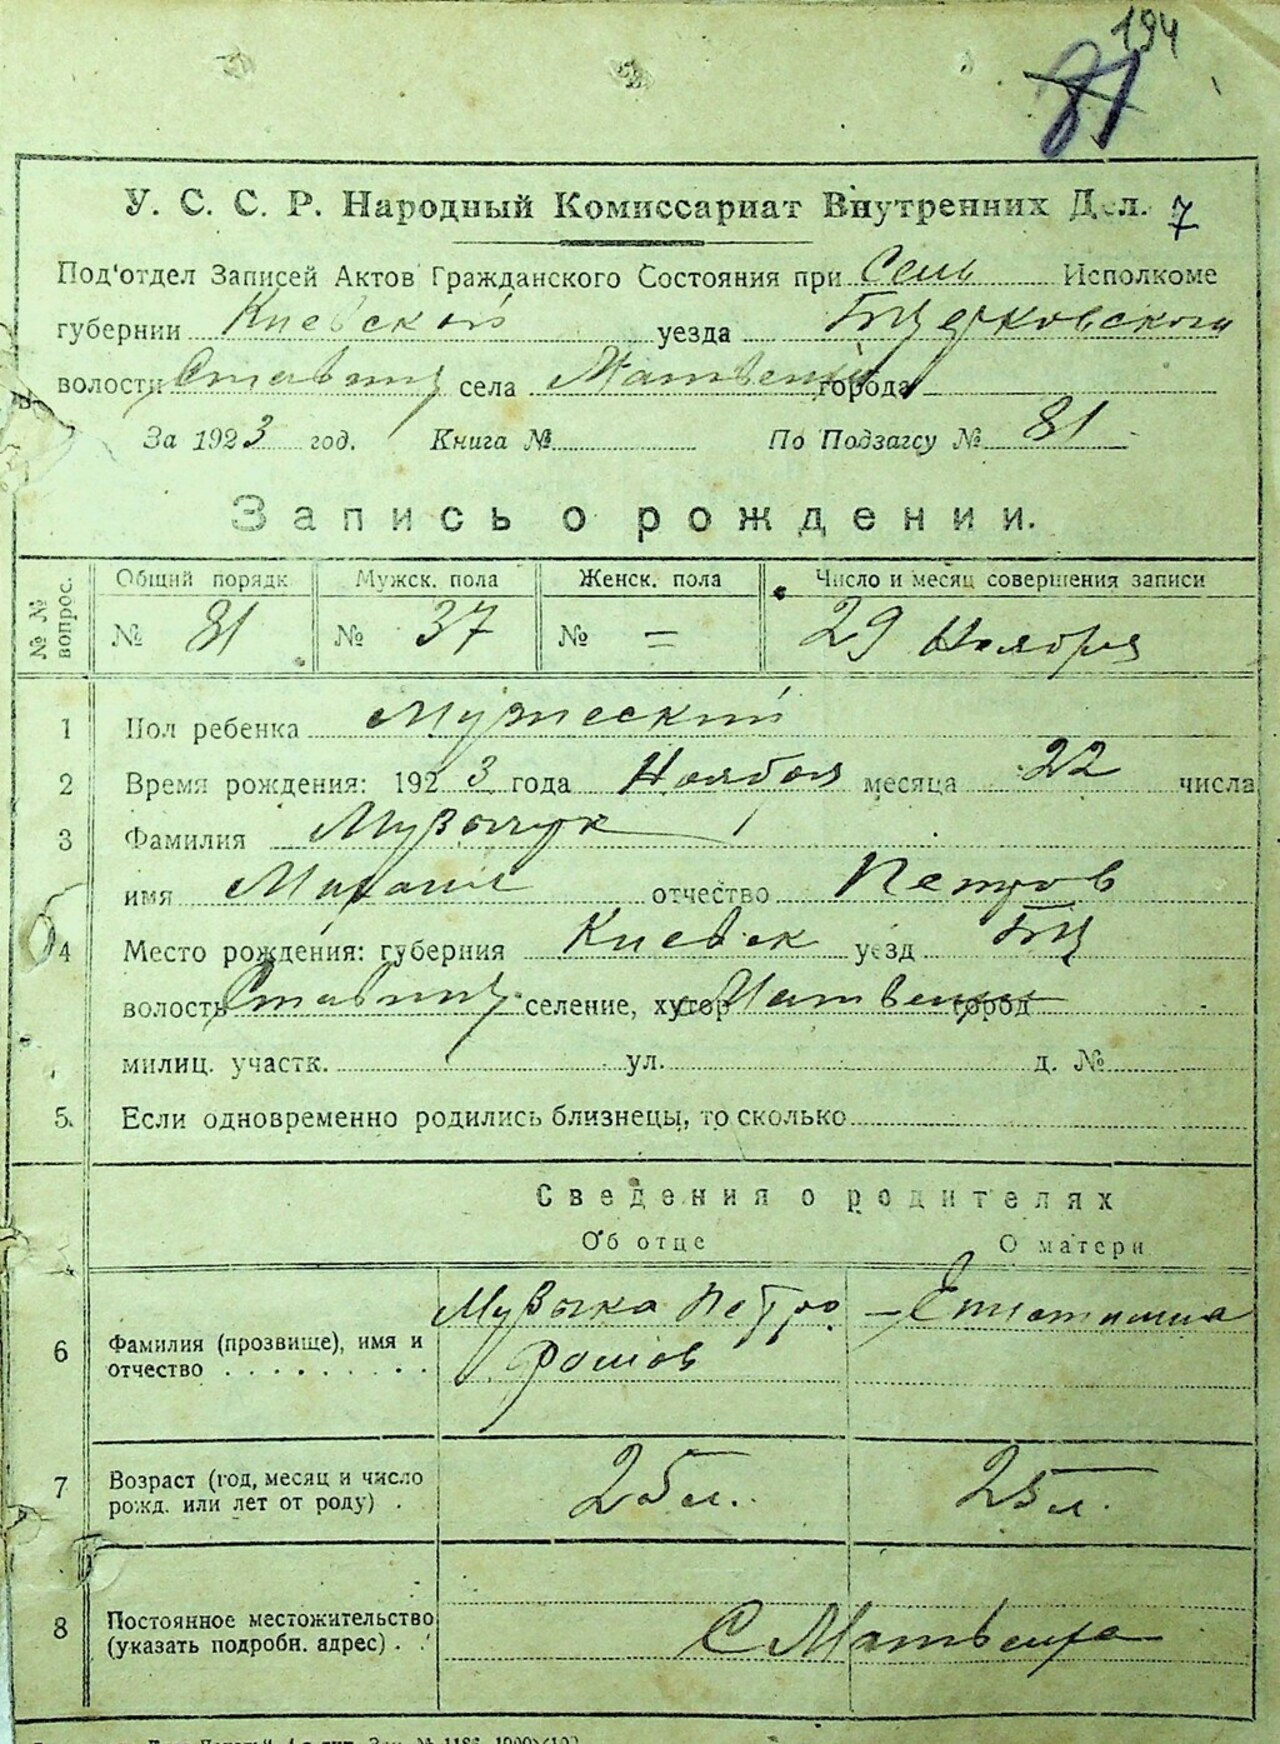 194
81
У. С. С. Р. Народный Комиссариат Внутренних Дел. 7
Под'отдел Записей Актов Гражданского Состояния при Сель Исполкоме
губернии Киевской уезда БЦерковского
волости Ставищ села Матвеиха города
За 1923 год. Книга № По Подзагсу № 81
Запись о рождении.
№ № вопрос. Общий порядк Мужск. пола Женск. пола Число и месяц совершения записи
№ 81 № 37 № = 29 Ноября
1 Пол ребенка Мужеский
2 Время рождения: 1923 года Ноября месяца 22 числа
3 Фамилия
имя Михаил отчество Петров
4 Место рождения: губерния Киевск уезд БЦ
волость Ставищ селение, хутор город
милиц. участк. ул. д. №
5. Если одновременно родились близнецы, то сколько
Сведения о родителях
Об отце О матери
6 Фамилия (прозвище), имя и отчество Музыка Петро
7 Возраст (год, месяц и число рожд. или лет от роду) 25 л. 25 л.
8 Постоянное местожительство (указать подробн. адрес) С Матвеиха